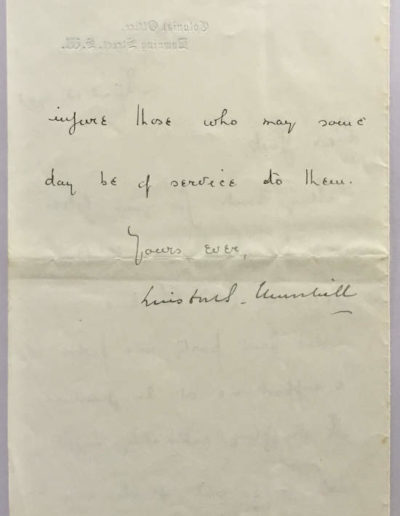 Colonial Office.
Downing Street, S.W.
injure those who may some
day be of service to them.
Yours ever,
Winston S. Churchill